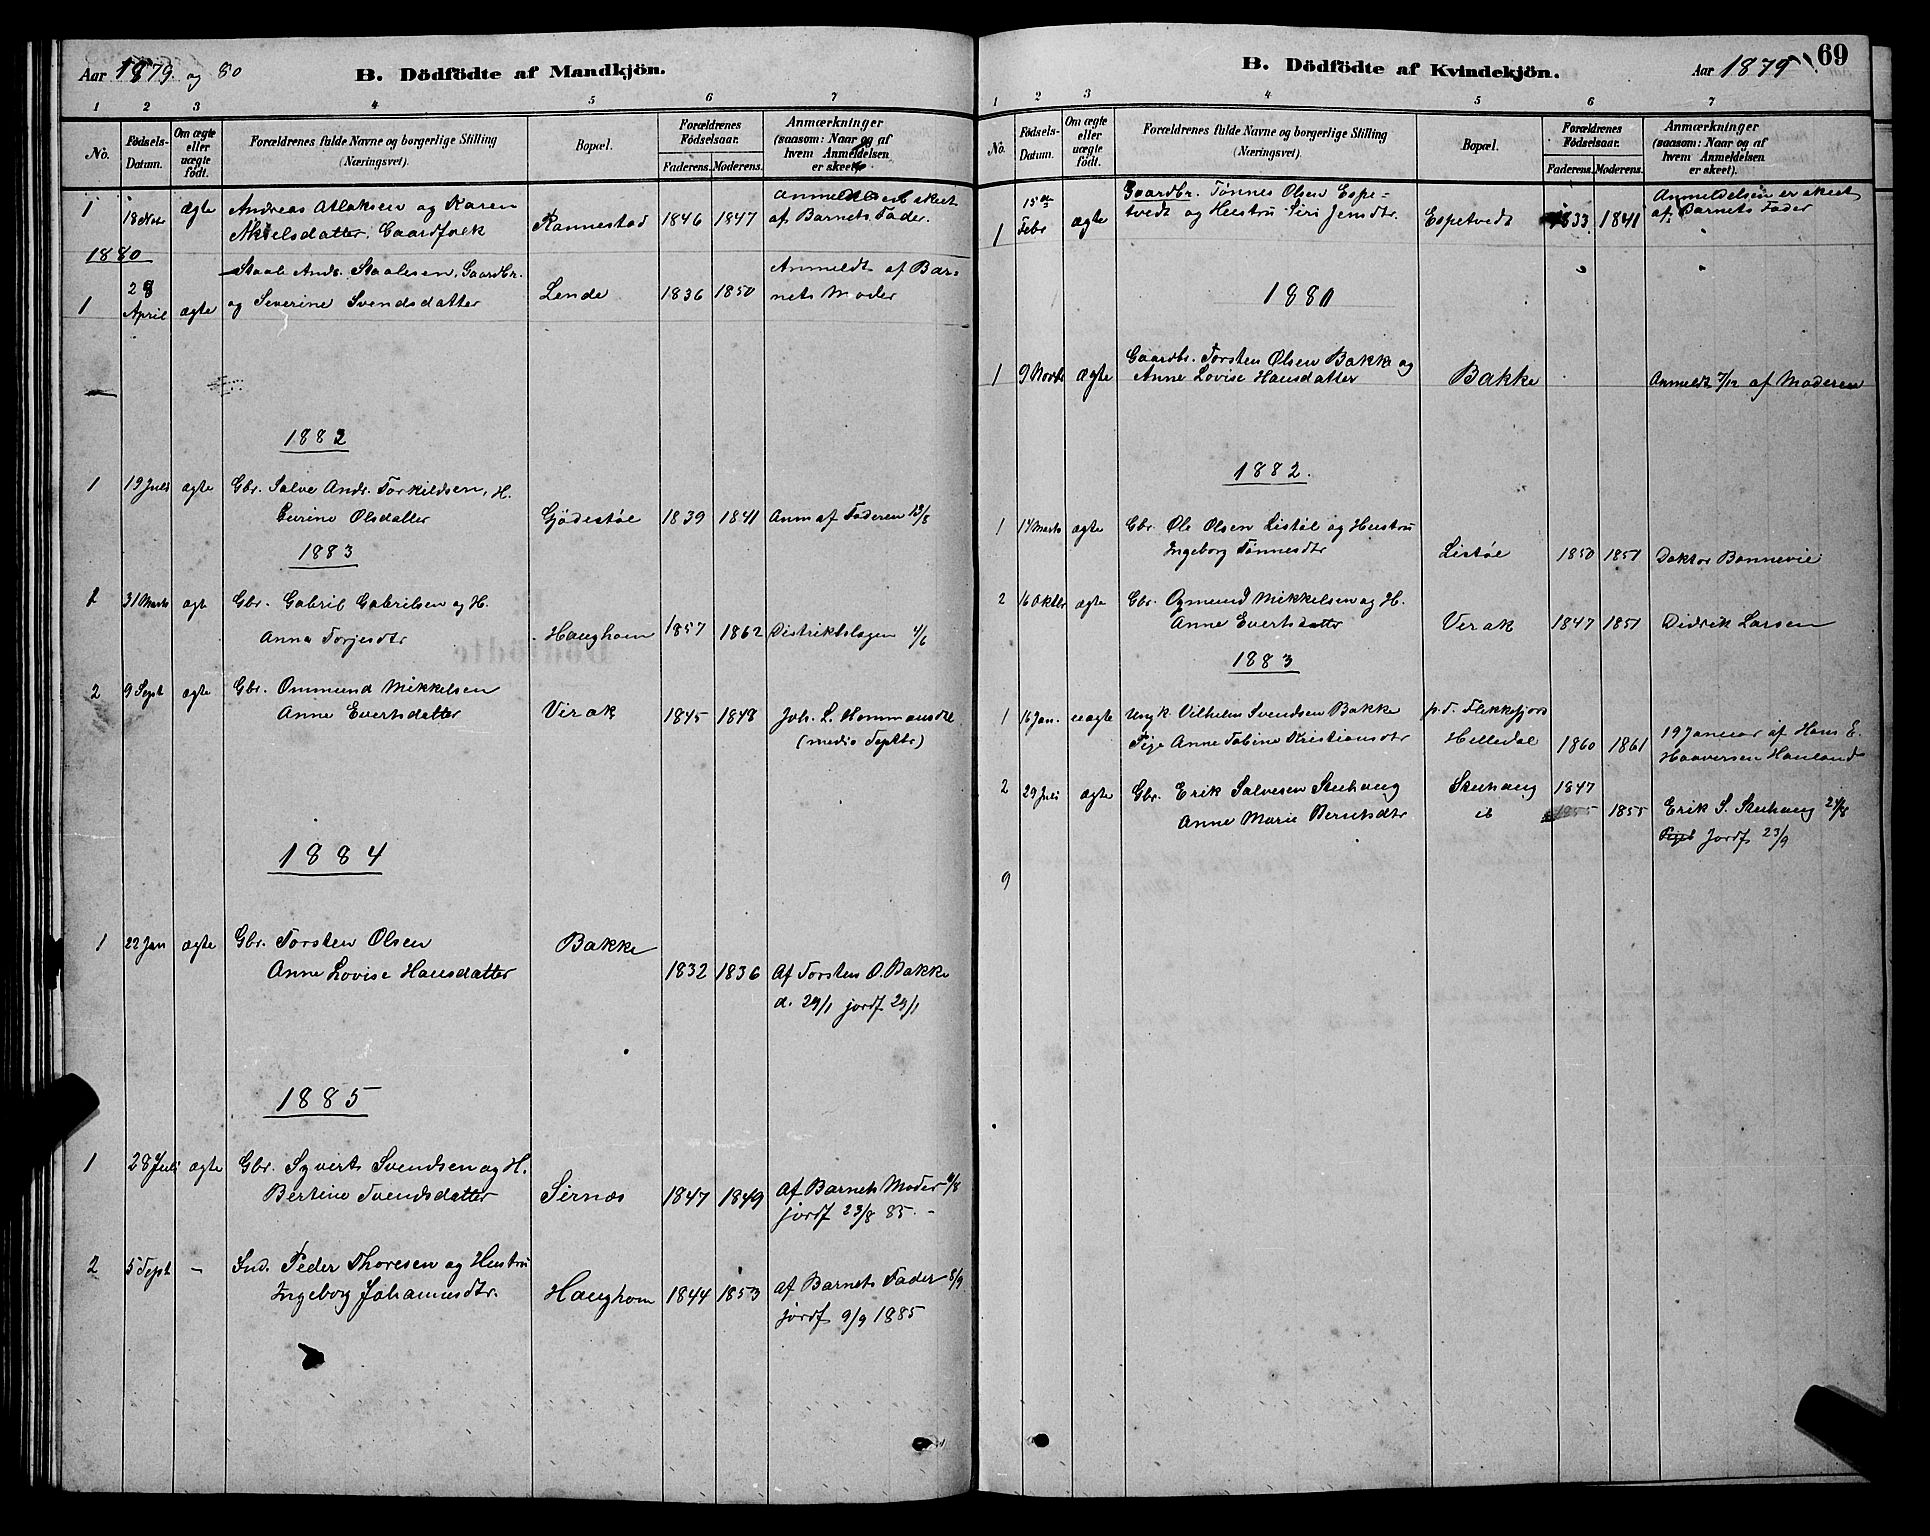 Aar 1879 og 80
B. Dödfödte af Mandkjön.
1 2 3 4 5 6 7
No.
Födsels-Datum.
Om ægte eller uægte født.
Forældrenes fulde Navne og borgerlige Stilling (Næringsvei).
Bopæl.
Forældrenes Födselsaar.
Faderens. Moderens.
Anmærkninger (saasom: Naar og af hvem Anmeldelsen er skeet).
1 18 ægte Andreas Atlaksen og Karen Rannestad 1846 1847 Anmeldelsen skeet
Akselsdatter, Gaardfolk af Barnets Fader.
1880
Staale Andr. Staalesen, Gaardbr. Anmeldt af Bar-
1 28 April ægte og Severine Svendsdatter Lende 1836 1850 nets Moder
1882
1 19 Juli ægte Gbr. Salve Andr. Torkildsen, H.
Olsdatter Gjødestøl 1839 1841 Anm af Faderen 13/8
1883
1 31 Marts ægte Gbr. Gabril Gabrilsen og H.
Anna Torjesdtr Haughom 1857 1862 Distriktslægen 4/6
2 9 Sept ægte Gbr. Ommund Mikkelsen
Anne Evertsdatter Virak 1845 1848 Joh. L.
(medio Septbr)
1884
1 22 Jan ægte Gbr. Torsten Olsen Bakke
Anne Lovise Hansdatter 1832 1836 Af Torsten O. Bakke
d. 29/1 jordf 29/1
1885
1 28 Juli ægte Gbr. Syvert Svendsen og H.
Bertine Svendsdatter Sirnæs 1847 1849 Af Barnets Moder
jordf 23/8 85. -
2 5 Sept - Ind. Peder Thoresen og Hustru
Ingeborg Johannesdtr. Haughom 1844 1853 af Barnets Fader 8/9
jordf 9/9 1885
B. Dödfödte af Kvindekjön.
Aar 1879
69
1 2 3 4 5 6 7
No.
Födsels-Datum.
Om ægte eller uægte födt.
Forældrenes fulde Navne og borgerlige Stilling (Næringsvei).
Bopæl.
Forældrenes Födselsaar.
Faderens. Moderens.
Anmærkninger (saasom: Naar og af hvem Anmeldelsen er skeet).
15de Gaardbr. Tønnes Olsen Espe- Anmeldelsen er skeet
1 Febr ægte tvedt og Hustru Siri Jensdtr. Espetvedt 1833 1841 af Barnets Fader
1880
Gaardbr. Torsten Olsen Bakke og
1 9 ægte Anne Lovise Hansdatter Bakke Anmeldt 7/12 af Moderen
1882.
1 Marts ægte Gbr. Ole Olsen Listøl og Hustru
Ingeborg Tønnesdtr Listøl 1850 1851 Doktor Bonnevie
2 16 Oktbr ægte Gbr. Ogmund Mikkelsen og H.
Anne Evertsdatter Virak 1847 1851 Didrik Larsen
1883
1 16 Jan. uægte Ungk. Vilhelm Svendsen Bakke p.t. Flekkefjord
Pige Anne Tobine Kristiansdtr Helledal 1860 1861 19 Januar af Hans E.
Haaversen Hauland
2 29 Juli ægte Gbr. Erik Salvesen Stuhaug Stuhaug 1847
Anne Marie Berntsdtr ib 1855 1855 Erik S. Stuhaug 24/8
Jordf 23/9
9